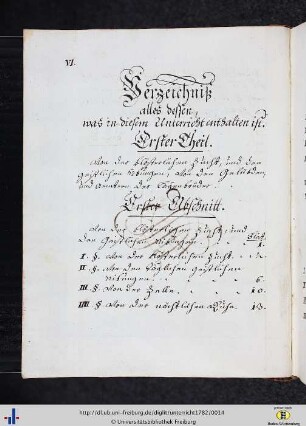 VI.
Verzeichniß
alles dessen,
was in diesem Unterricht enthalten ist.
Erster Theil.
Von der klösterlichen Zucht, und den
geistlichen Übungen, von den Gelübden,
und Aemtern der Layenbrüder.
Erster Abschnitt.
Von der klösterlichen Zucht, und
den geistlichen Uibungen. Blat.
I. §. Von der klösterlichen Zucht. 1.
II. §. Von den täglichen geistlichen
Uibungen. 6.
III. §. Von der Zelle. 10.
IIII. §. Von der nächtlichen Ruhe. 13.
http://dl.ub.uni-freiburg.de/diglit/unterricht1782/0014
© Universitätsbibliothek Freiburg
Baden-Württemberg